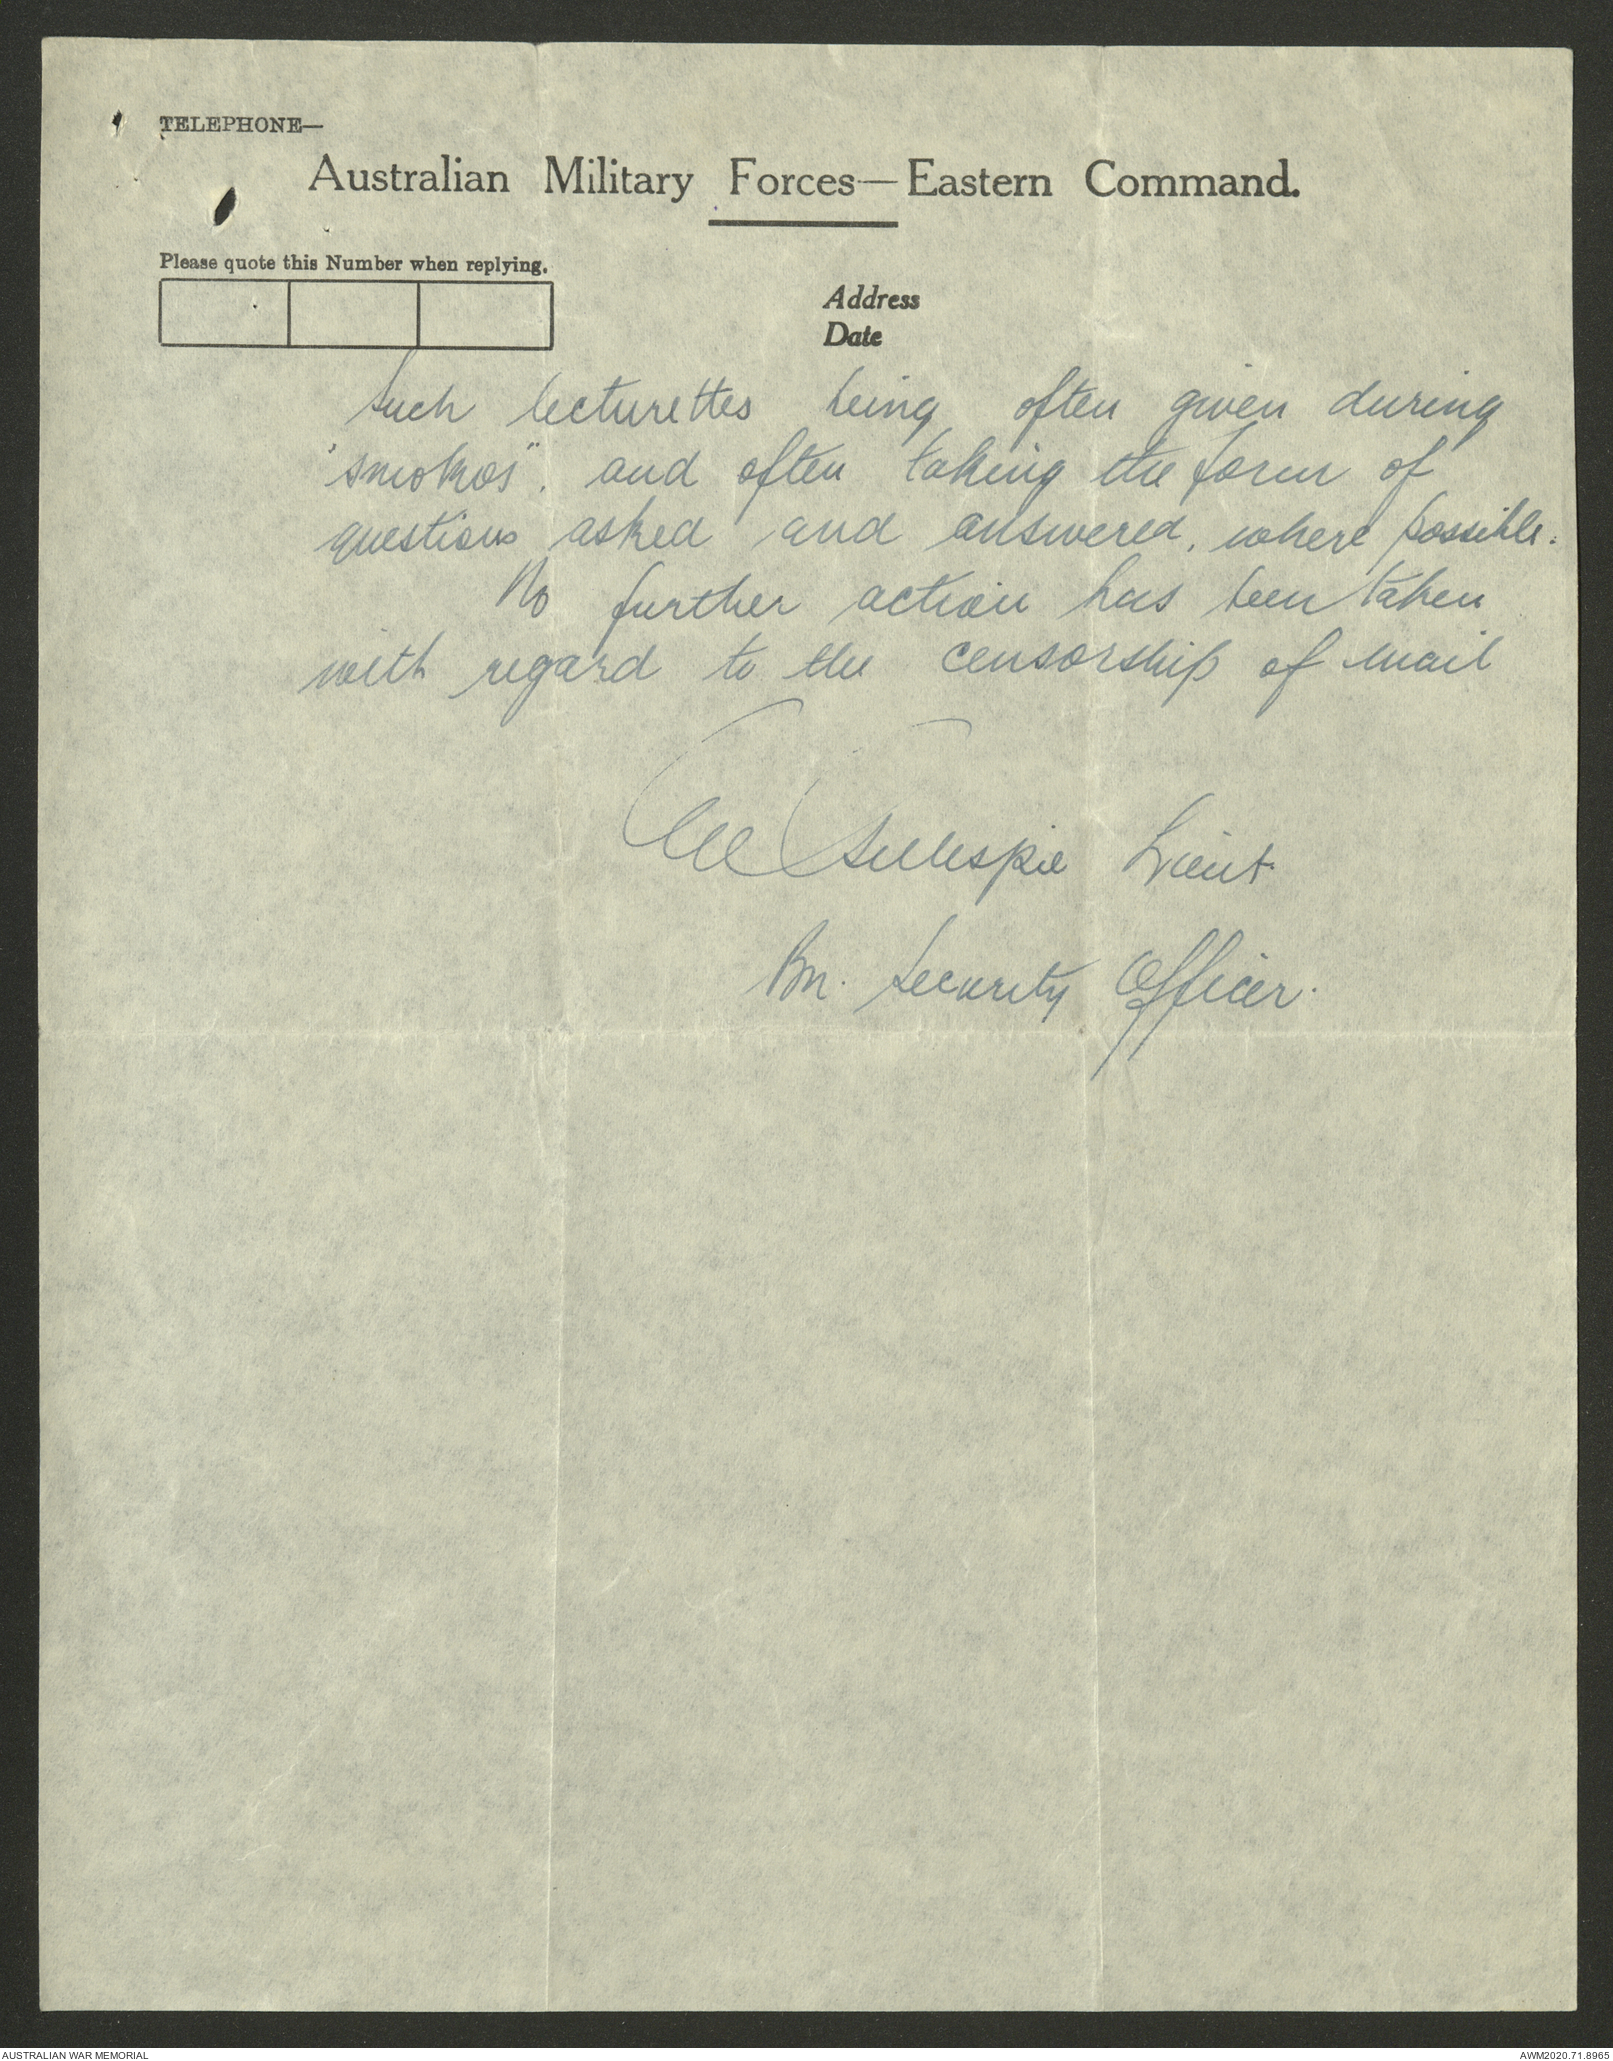 TELEPHONE—
Australian Military Forces—Eastern Command.
Please quote this Number when replying.
Address
Date
Such lecturettes being often given during
"smokos". and often taking the form of
questions asked and answered, where possible.
No further action has been taken
with regard to the censorship of mail
Gillespie Lieut
Bn. Security Officer.
AUSTRALIAN WAR MEMORIAL
AWM2020.71.8965